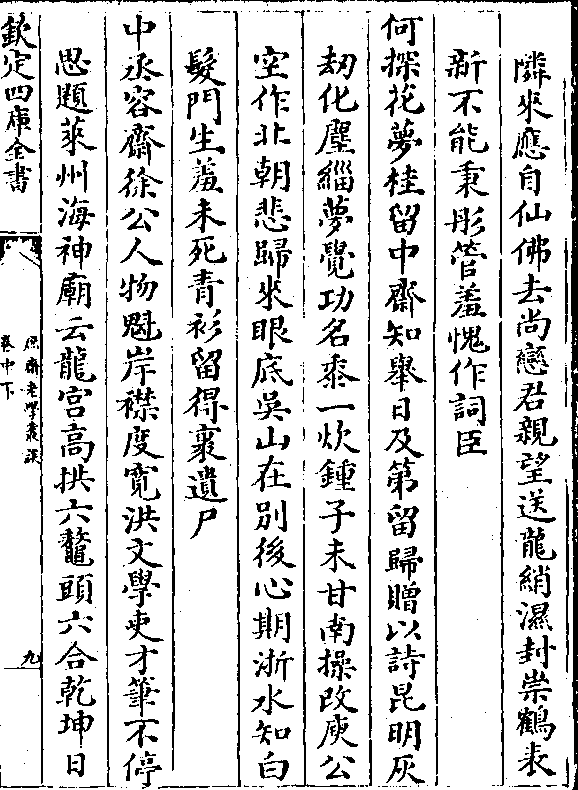 隣來應自仙佛去尚戀君親望送龍綃濕封崇鶴表
新不能秉彤管羞愧作詞臣
何探花夢桂留中齋知舉日及第留歸贈以詩昆明灰
刼化塵緇夢覺功名黍一炊鍾子未甘南操改庾公
空作北朝悲歸來眼底吳山在別後心期浙水知白
髮門生羞未死青衫留得裹遺尸
中丞容齋徐公人物魁岸襟度寬洪文學吏才筆不停
思題萊州海神廟云龍宮高拱六鼇頭六合乾坤日
欽定四庫全書
庶齋老學叢談
卷中下
九